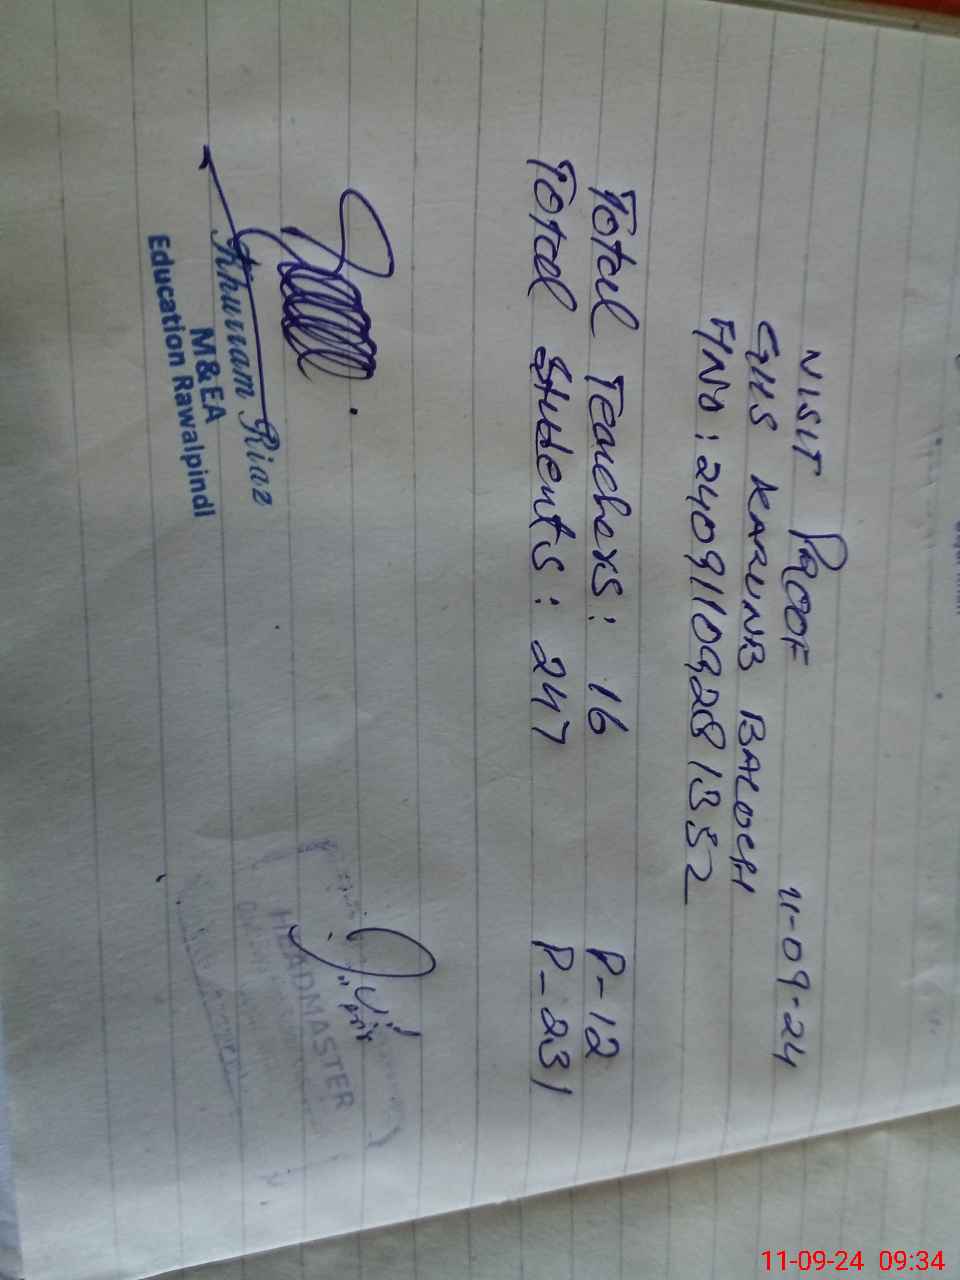 VISIT PROOF 11-09-24
GHS KARUNB BALOCH
A/No: 24091109281332
Total Teachers: 16 P-12
Total Students: 247 P-231
Khurram Riaz
M&EA
Education Rawalpindi
HEADMASTER
11-09-24 09:34